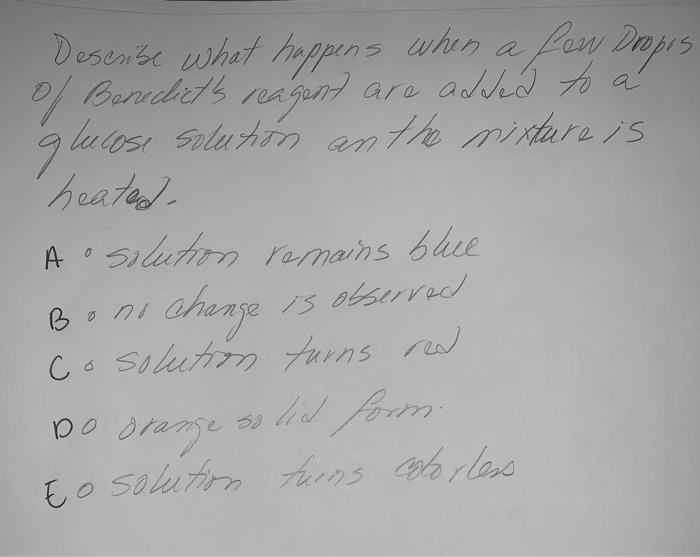 Describe what happens when a few Drops
of Benedict's reagent are added to a
glucose solution an the mixture is
heated.
A o solution remains blue
B o no change is observed
C o solution turns red
D o orange solid form.
E o solution turns colorless